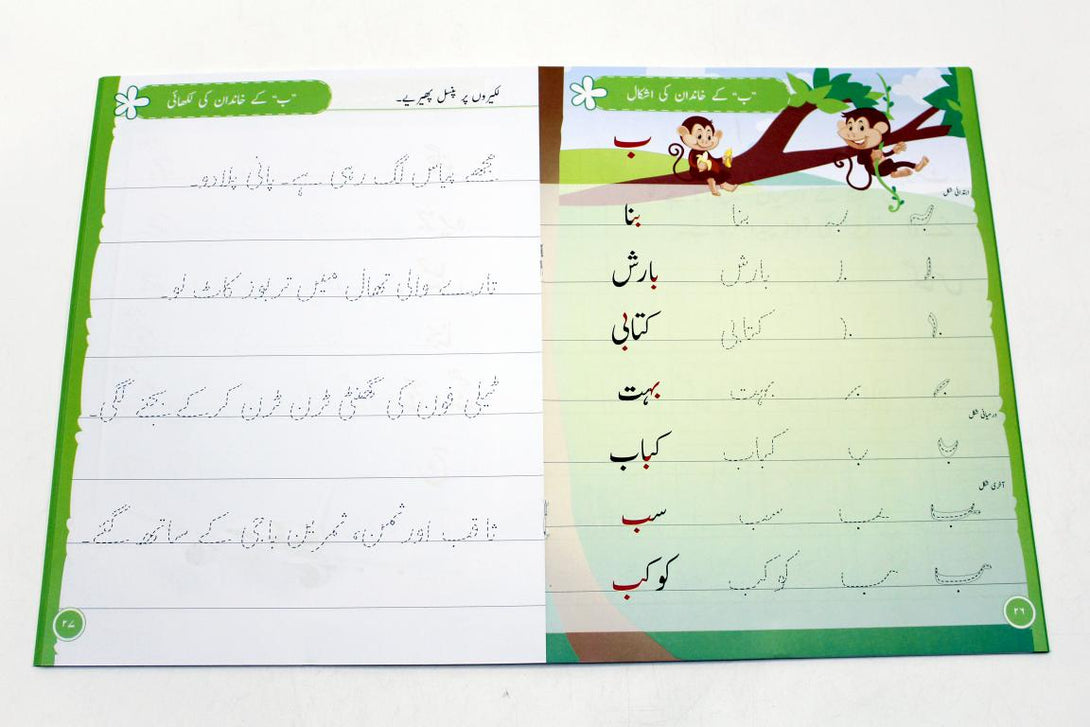 "ب" کے خاندان کی اشکال
ب
ابتدائی شکل
بنا بنا
بارش بارش
کتابی کتابی
بہت بہت
درمیانی شکل
کباب کباب
آخری شکل
سب سب
کوکب کوکب
۲٦
"ب" کے خاندان کی لکھائی
لکیروں پر پنسل پھیریے۔
مجھے پیاس لگ رہی ہے۔ پانی پلا دو۔
تارے والی تھال میں تربوز کاٹ لو۔
ٹیلی فون کی گھنٹی ٹرن ٹرن کر کے بجنے لگی۔
ثاقب اور ثمن، ثمرین باجی کے ساتھ گئے۔
۲۷